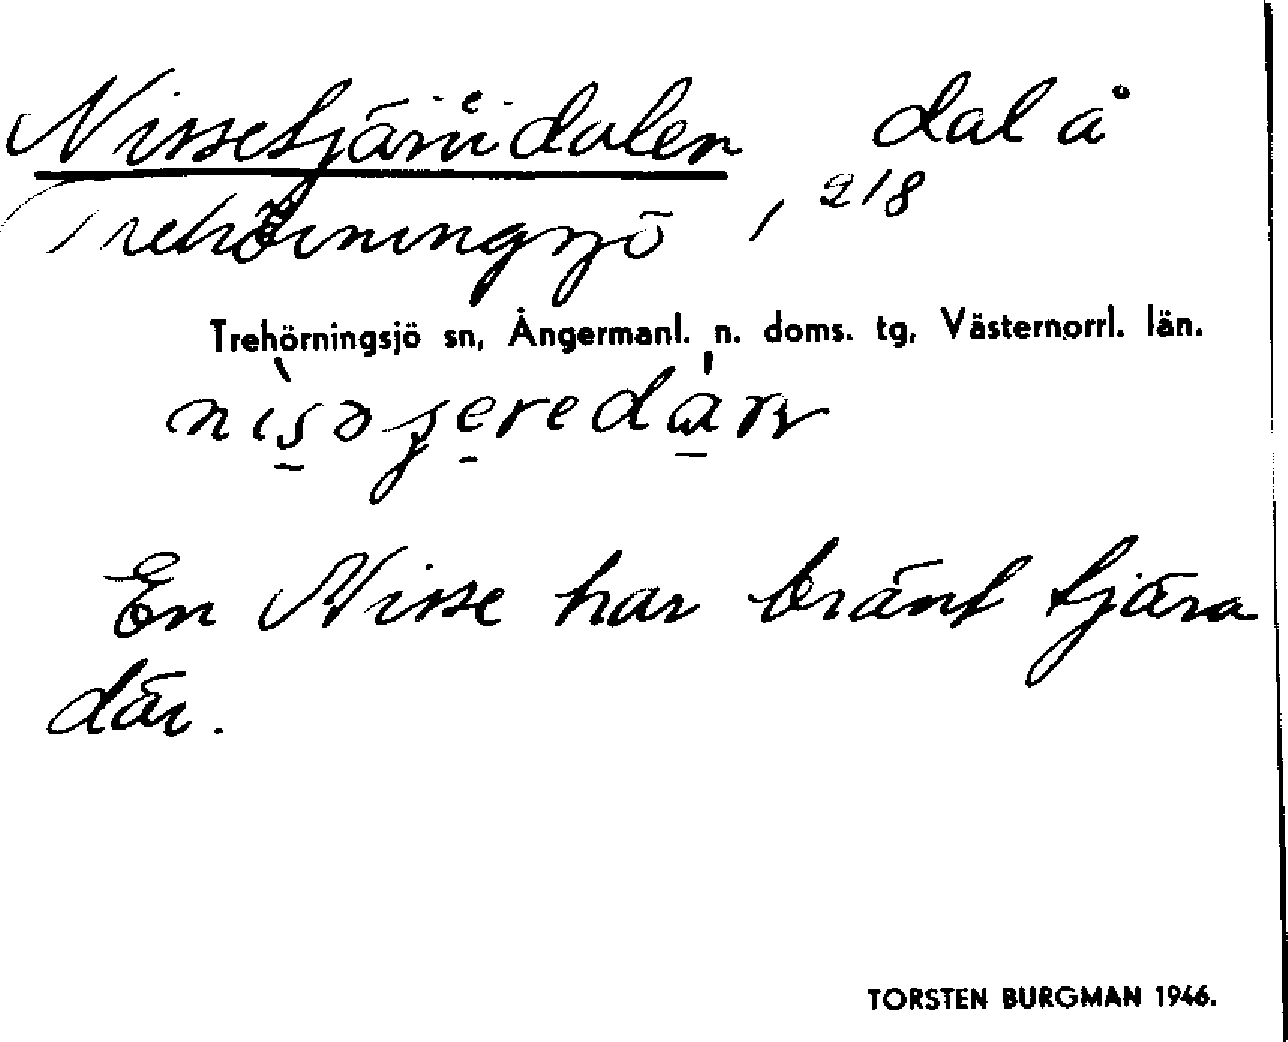 Nissetjäredalen, dal å
Trehörningsjö, 2/8
Trehörningsjö sn, Ångermanl. n. doms. tg, Västernorrl. län.
En Nisse har bränt tjära
där.
TORSTEN BURGMAN 1946.